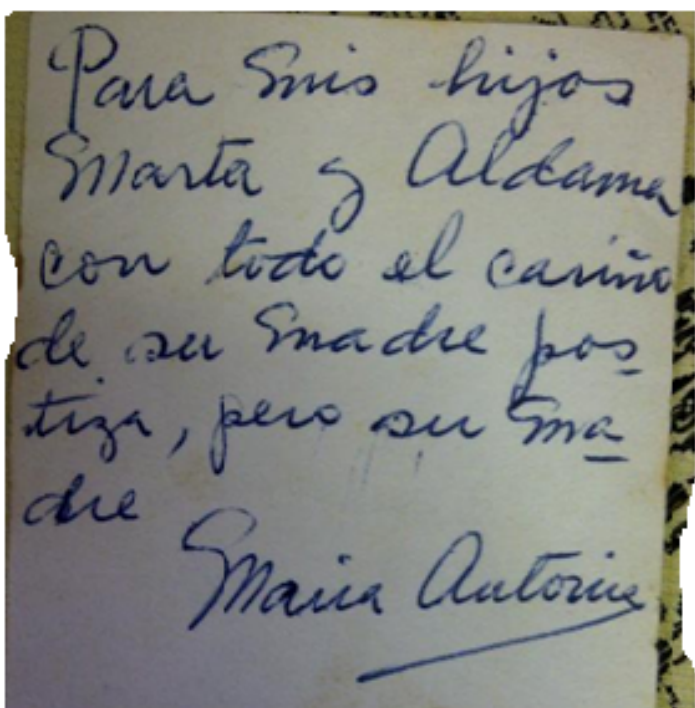 Para mis hijos
Marta y Aldama
con todo el cariño
de su madre pos
tiza, pero su ma
dre
Maria Antonia